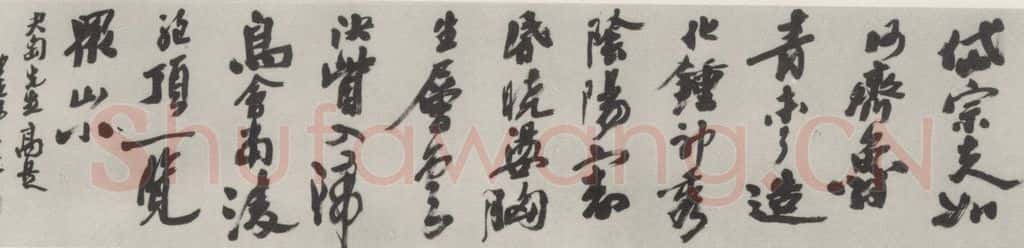 岱宗夫如
何齊魯
青未了造
化鍾神秀
陰陽割
昏曉盪胸
生層雲
決眥入歸
鳥會當凌
絕頂一覽
眾山小
先生
Shufawang.CN